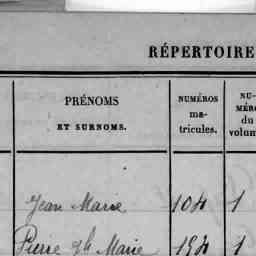 RÉPERTOIRE
PRÉNOMS
ET SURNOMS.
NUMÉROS
ma-
tricules.
NU-
MÉRO
du
volum
Jean Marie 104 1
Pierre Marie 194 1